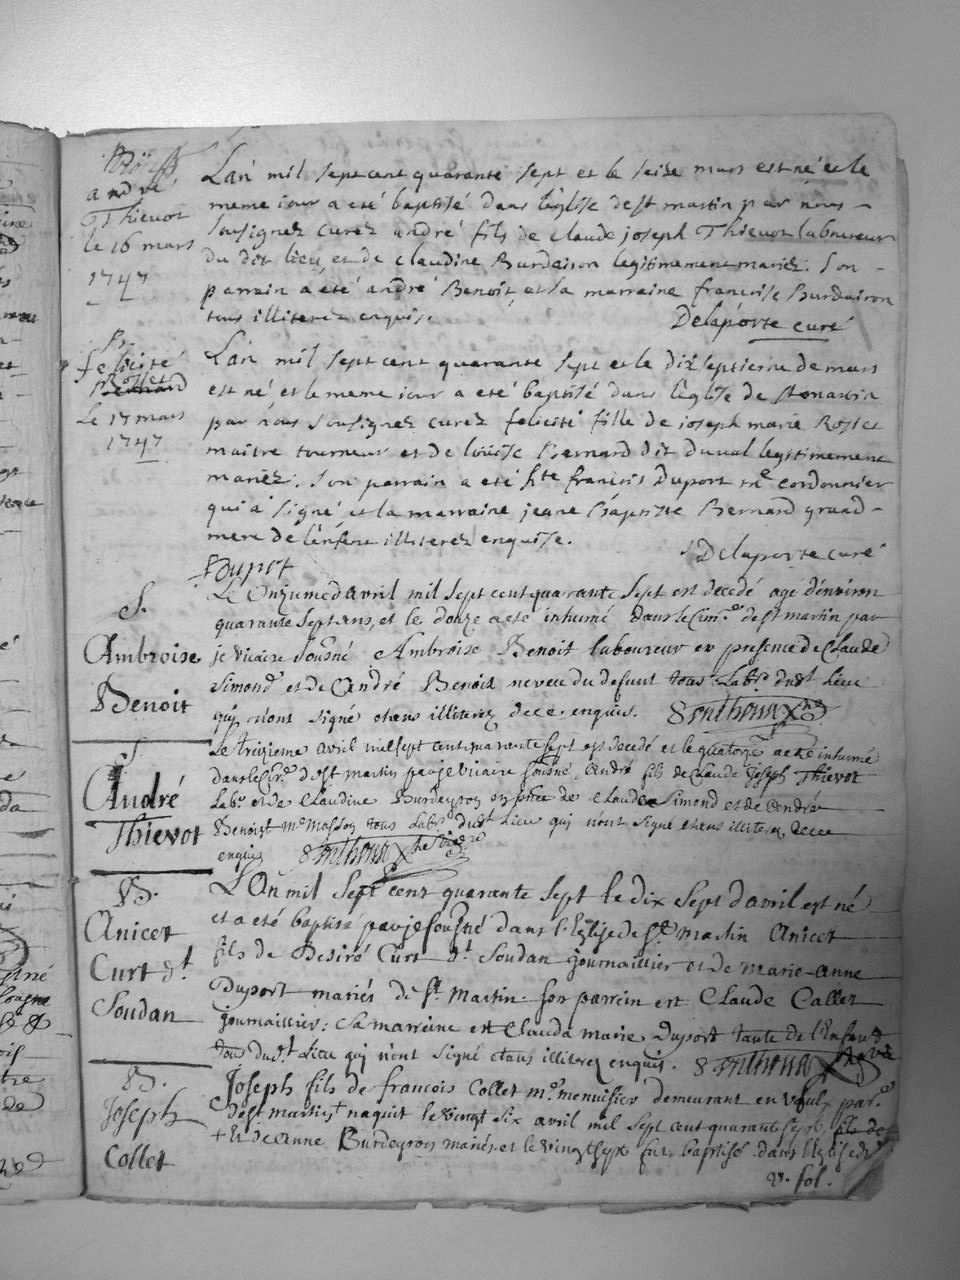 andré
Thievot
le 16 mars
1747
L'an mil sept cent quarante sept et le seise mars est né et le
meme iour a eté baptisé dans l'eglise de st martin par nous
sousignez curez andré fils de claude joseph Thievot laboureur
du dit lieu et de claudine Burdairon legitimement mariez. son
parrain a eté andré Benoit et sa marraine francoise Burdairon
tous illiterez enquis.
Delaporte curé
B.
felicité
Rosset
Bernard
Le 17 mars
1747
L'an mil sept cent quarante sept et le dix septieme de mars
est né et le meme iour a eté baptisé dans l'eglise de st martin
par nous sousignez curez felicité fille de joseph marie Rosset
maitre tourneur et de loüise Bernard dit duval legitimement
mariez. son parrain a eté francois Duport me cordonnier
qui a signé et la marraine jeane Baptiste Bernard grand-
mere de l'enfent illiterez enquise.
Duport
Delaporte curé
S.
Ambroise
Benoit
Le Onzieme d'avril mil sept cent quarante sept est decedé agé d'environ
quarante sept ans, et le douze a eté inhumé dans le Cim.re de st martin par
je vicaire sousné Ambroise Benoit laboureur en presence de Claude
Simond et de André Benoit neveu du defunt tous lab.rs dudt lieu
qui n'ont signé etens illiterez de ce enquis.
S.
André
Thievot
Le treizieme avril mil sept cent quarante sept est decedé et le quatorze a eté inhumé
dans le Cim.re de st martin par je vicaire sousné, André fils de Claude Joseph Thievot
Lab.r et de Claudine Burdeyron en pñce de Claude Simond et de André
Benoist me Masson tous Lab.rs dudt Lieu qui n'ont signé etens illiterez de ce
enquis
B.
Anicet
Curt dt
Soudan
L'An mil sept cent quarante sept le dix sept d'avril est né
et a eté baptisé par je sousné dans l'Eglise de st Martin Anicet
fils de Desiré Curt dt Soudan journaillier et de Marie-Anne
Duport mariés de st Martin. son parrein est Claude Callet
journaillier: sa marreine est Clauda marie Duport tante de l'Enfant
tous dudt Lieu qui n'ont signé etans illiterez enquis.
B.
Joseph
Collet
Joseph fils de francois Collet me menuisier demeurant en Vaulx par.e
de st martin + naquit le vingt six avril mil sept cent quarante sept, fils de
+ Et Jeanne Burdeyron mariés et le vingt sept fut baptisé dans l'Eglise de
v. fol.